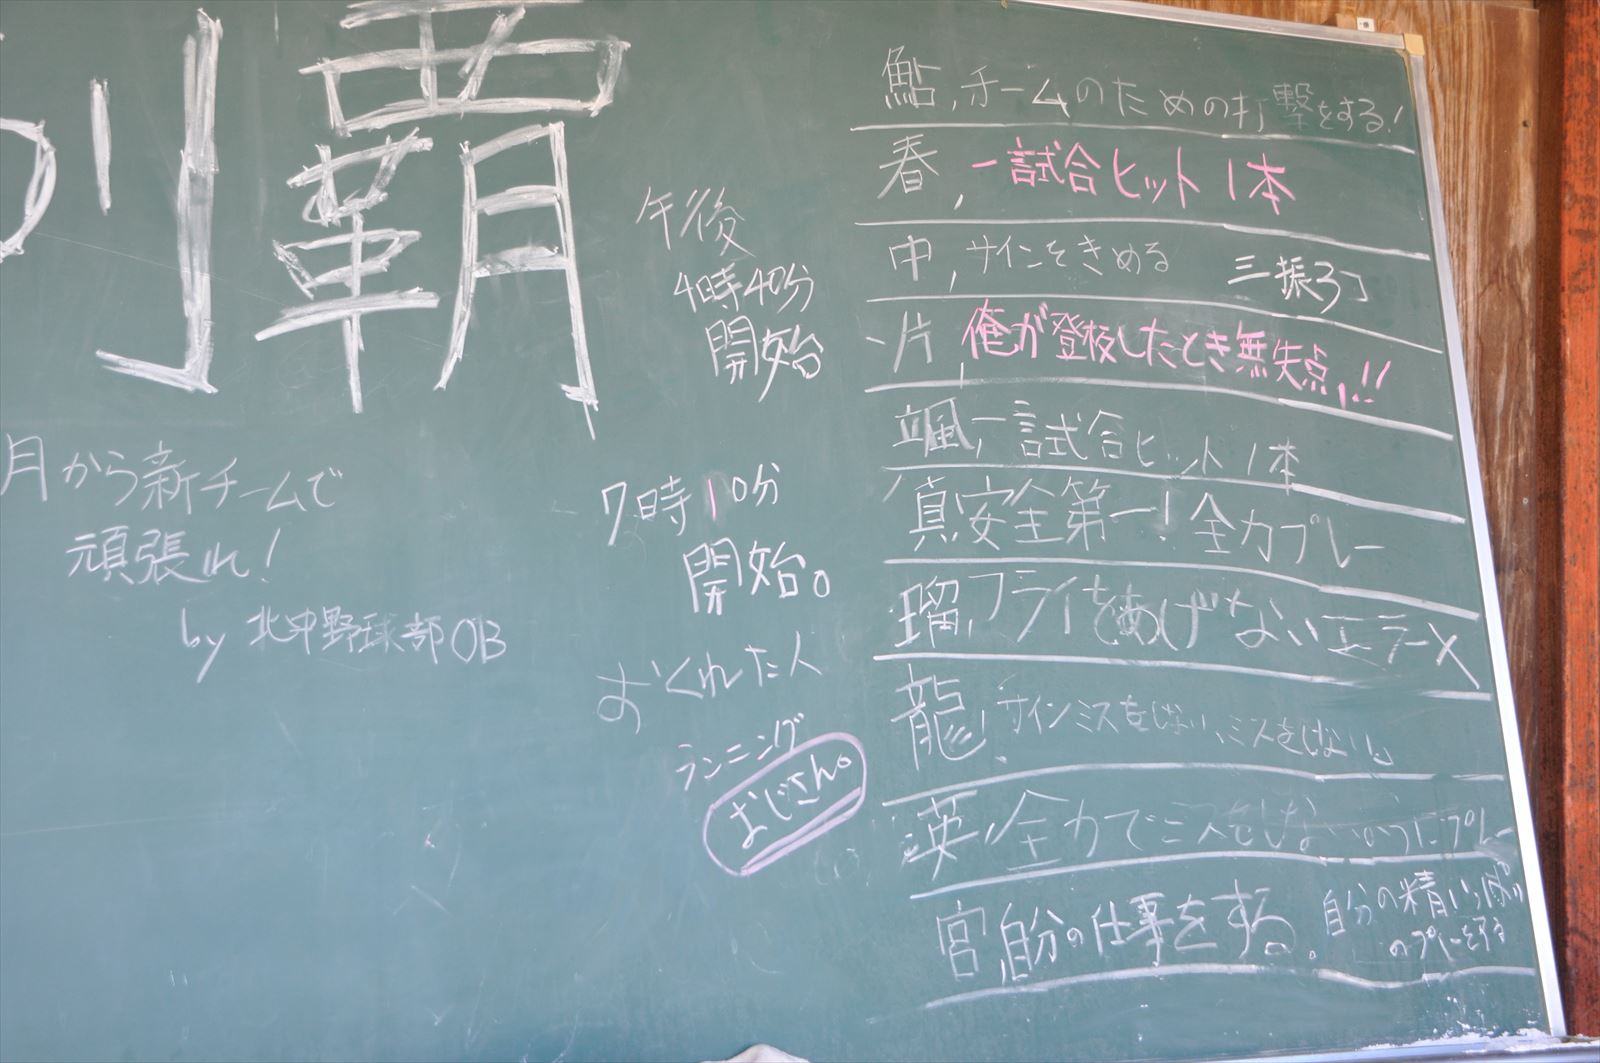 覇
月から新チームで
頑張れ!
by 北中野球部OB
午後
4時40分
開始
7時10分
開始。
おくれた人
ランニング
おじさん。
鮎,チームのための打撃をする!
春,一試合ヒット1本
中,サインをきめる 三振3コ
片,俺が登板したとき無失点,!!
颯,一試合ヒット1本
真,安全第一!全力プレー
瑠,フライをあげないエラー×
龍,サインミスをしない、ミスをしない。
英,全力でミスをしないようにプレー
宮,自分の仕事をする。自分の精いっぱい
のプレーをする